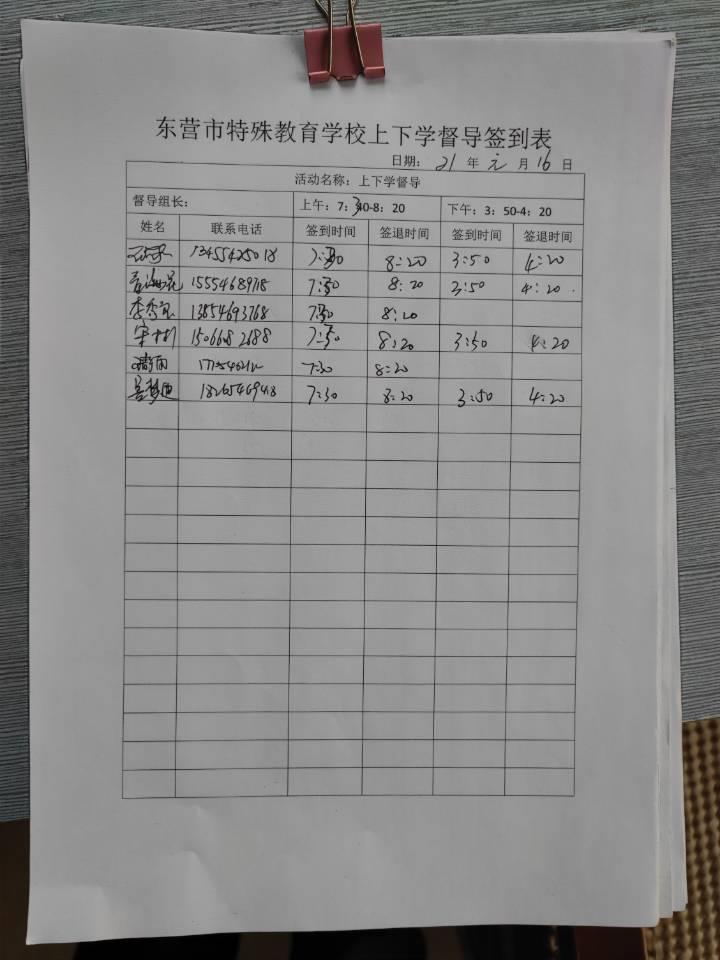 东营市特殊教育学校上下学督导签到表
日期: 21 年 元 月 16 日
活动名称：上下学督导
督导组长： 上午：7：30-8：20 下午：3：50-4：20
姓名 联系电话 签到时间 签退时间 签到时间 签退时间
13455425018 7:30 8:20 3:50 4:20
15554689718 7:30 8:20 3:50 4:20.
13854693768 7:30 8:20
宋树 15066082688 7:30 8:20 3:50 4:20
7:30 8:20
18265469418 7:30 8:20 3:50 4:20